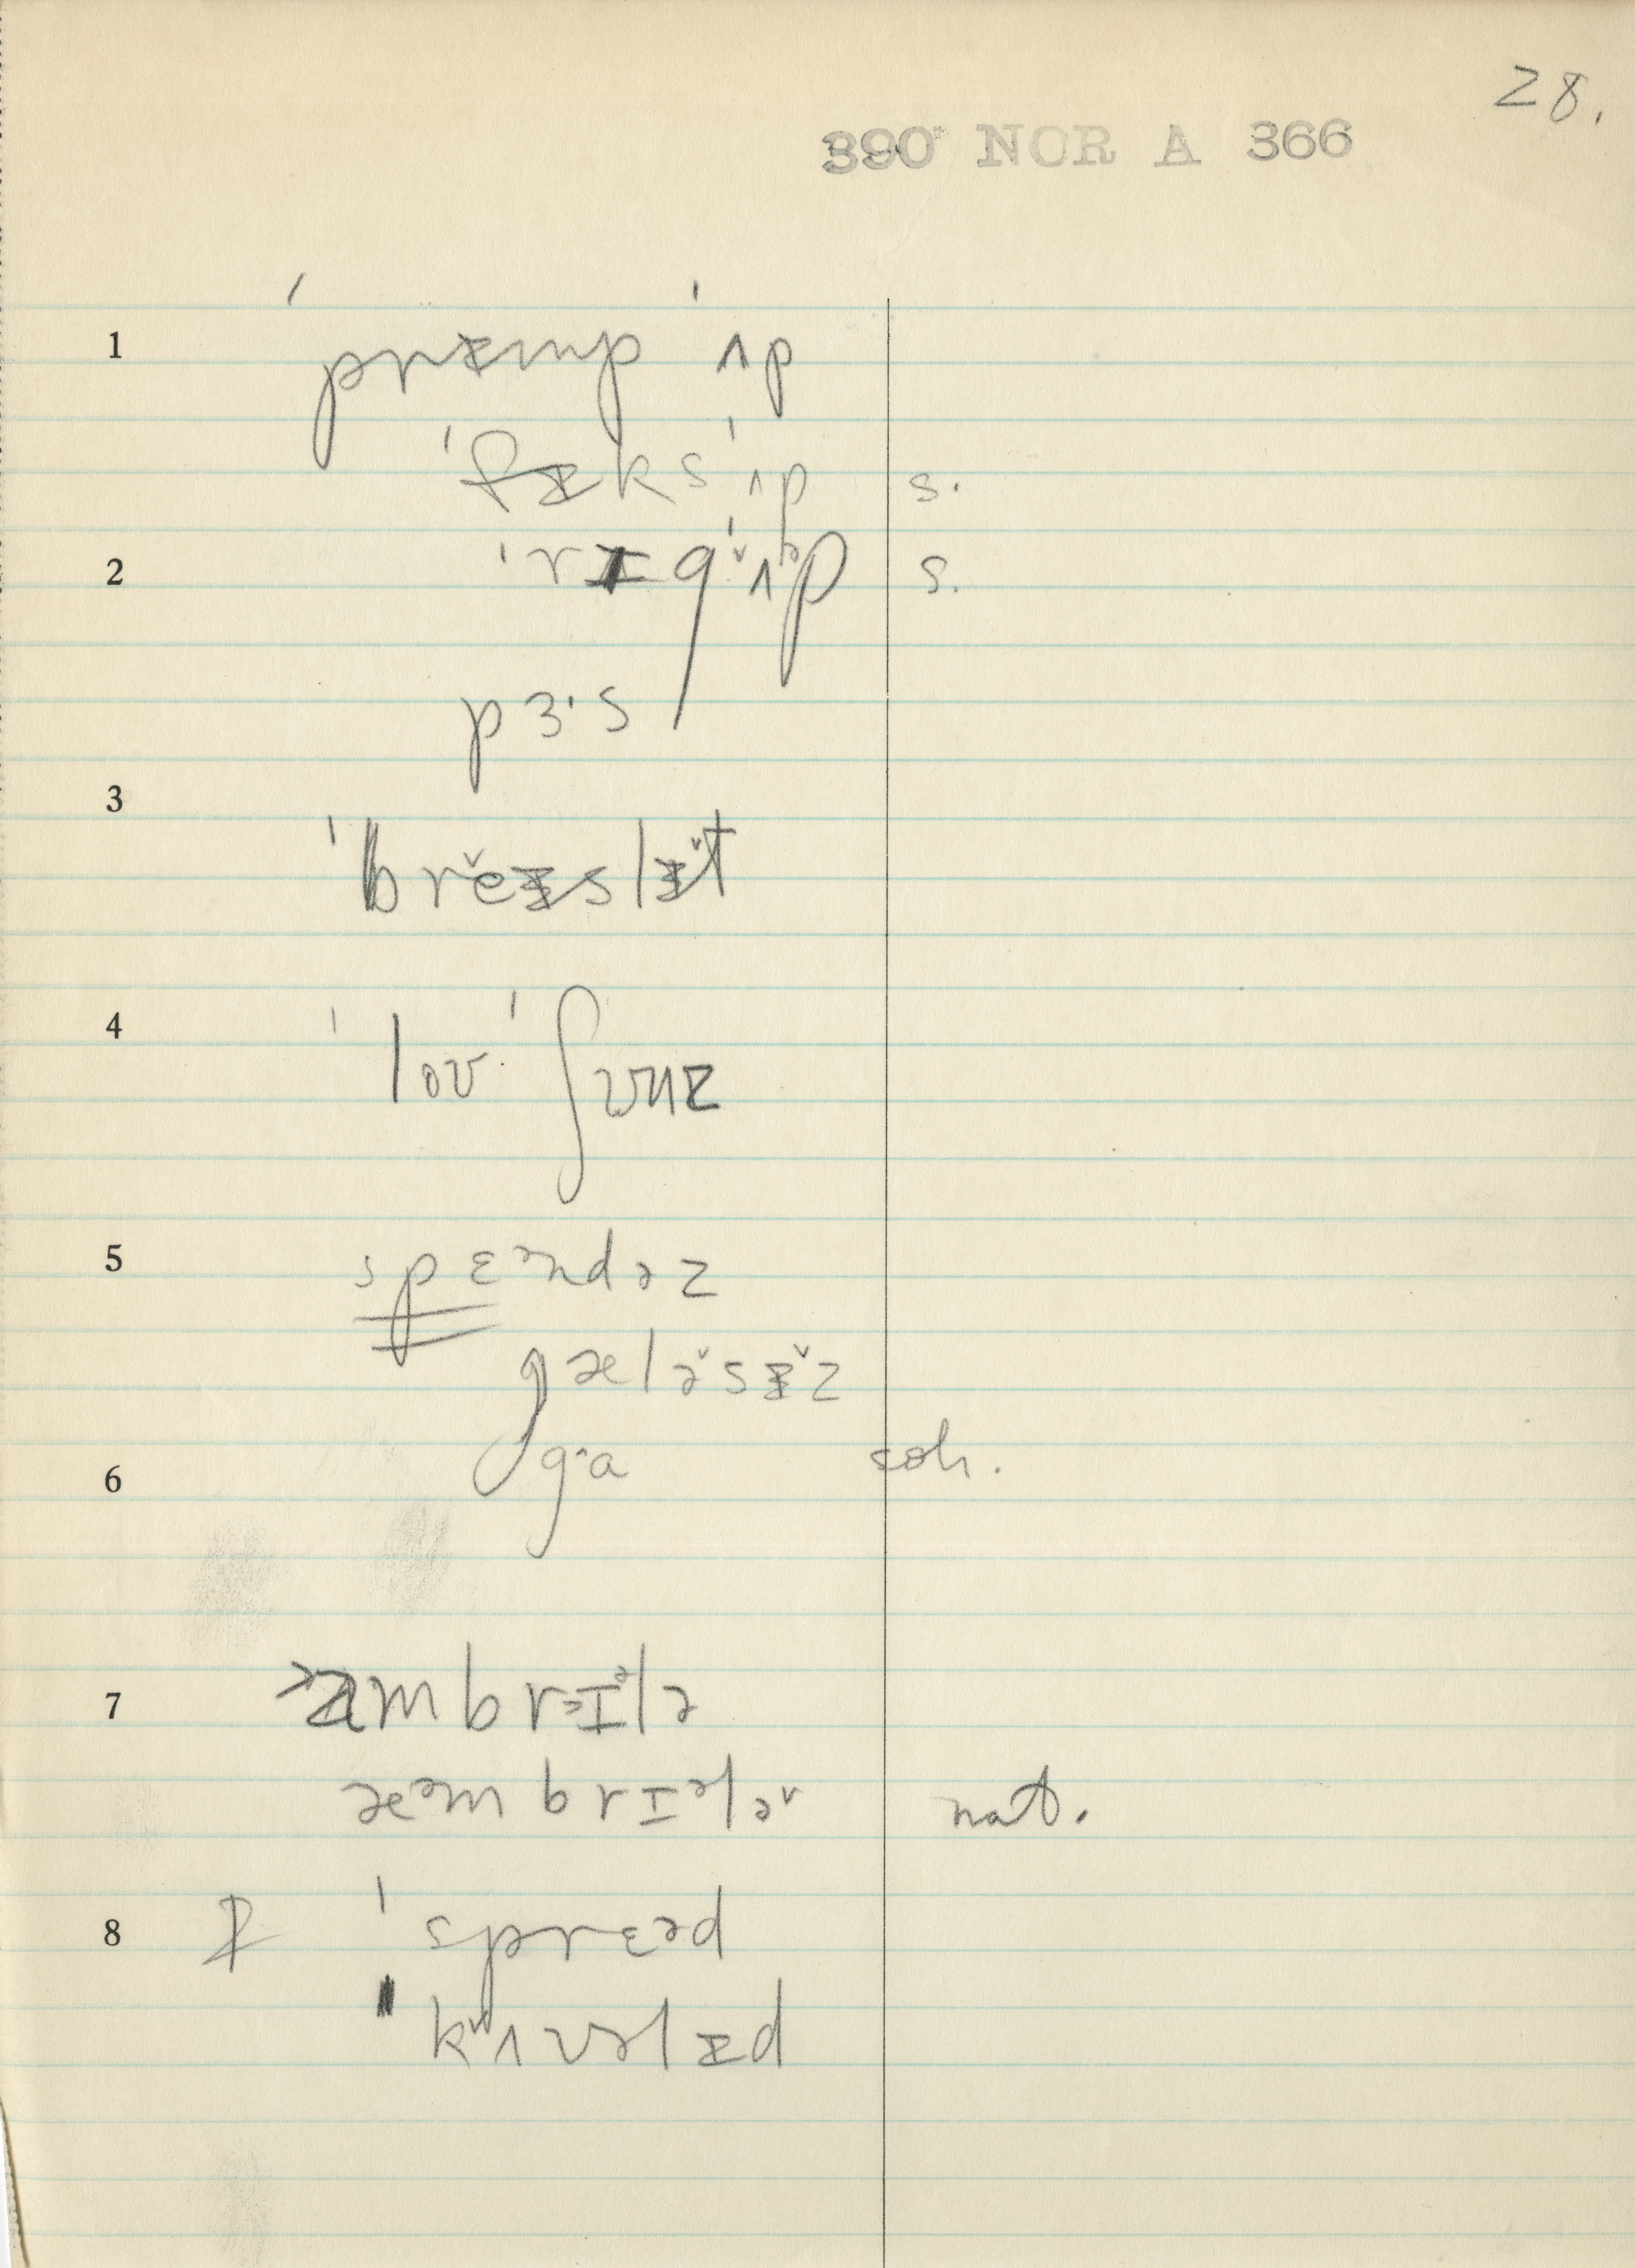 28.
390 NOR A 366
1 ˈprɪ̵mp ˈʌp
ˈfɪ̵ks ˈʌp s.
2 ˈrɪgˈʌ̌ᵊp s.
pɜ·s
3 ˈbrěɪ̵slɪ̵̌t
4 ˈloʊ ˈʃʊuz
5 spɛᵊndəz
gælə̌sɪ̵̌z
6 g·a coh.
7 æmbrɪᵊlə
æᵊmbrɪᵊlə̌ nat.
8 ˈsprɛəd
kʷʌʊəlɪ̵d